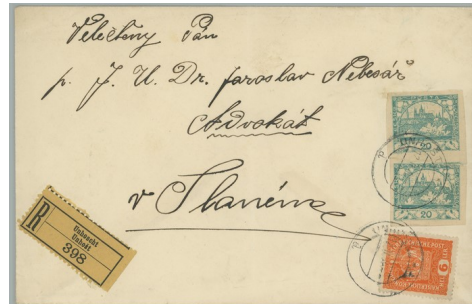 Velectěný Pán
p. J. U. Dr. Jaroslav Nebesář
Advokát
v Slaném
R
Unhoscht
Unhošť
398
20
6